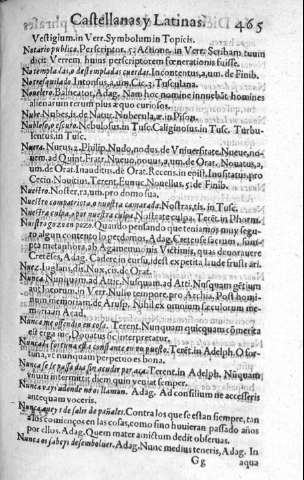 Castellanas y Latinas. 465
Vestigium. in Verr. Symbolum in Topicis.
Notario publico. Perscriptor. 5: Actione. in Verr. Scribam tuum
dicit Verrem huius perscriptorem fœnerationis fuisse.
No templadas, o destempladas cuerdas. Incontentus, a, um. de Finib.
No trasquilado. Intonsus, a, um. Cic. 3. Tusculana.
Adag. Nam hoc nomine innuebāt homines
alienarum rerum plus æquo curiosos.
Nube. Nubes, is. de Natur. Nubecula, æ. in Pison.
Nubloso, o escuro. Nebulosus. in Tusc. Caliginosus. in Tusc. Turbu-
lentus. in Tusc.
Nuera. Nurus. 2. Philip. Nudo, nodus. de Vniuersitate. Nueue, no-
uem. ad Quint. Fratr. Nueuo, nouus, a, um. de Orat. Nouatus, a,
um. de Orat. Inauditus. de Orat. Recens. in epist. Inusitatus. pro
Cecin. Nouitius. Terent. Eunuc. Nouellus. 5: de Finib.
Nuestro. Noster, ra, um. pro domo sua.
Nuestro compatriota, o nuestra camarada. Nostras, tis. in Tusc.
Nuestra culpa, o por nuestra culpa. Nostrate culpa. Terēt. in Phorm.
Nuestro gozo en pozo. Quando pensando que teniamos muy segu-
ro algun contento lo perdemos. Adag.
pto metaphora, ab Agamemnonis Victimis, quas deuorauere
Cretēses. Adag. Cadere in cursu, dest expetita laude frustrari.
Nuez. Iuglans, dis. Nux, cis. de Orat.
Nunca. Nunquam. ad Attic. Nusquam. ad Atti. Nusquam gētium
auditorum. in Verr. Nullo tempore. pro Archia. Post homi-
num memoriam. de Arusp. Nihil ex omnium sæculorum me-
moria. in Acad.
Nunca me ofendio en cosa. Terent. Nunquam quicquam cōmerita
est erga me. Donatus sic interpretatur.
Terēt. in Adelph. O for-
tuna, vt nunquam perpetuo es bona.
Nunca se le passa dia sin acudir por acà. Terent. in Adelph. Nūquam
vnum intermittit diem quin veniat semper.
Nunca vays adonde no os llaman. Adag. Ad consilium ne accesseris
antequam voceris.
Contra los que se estan siempre, tan
a los comienços en las cosas, como sino huuieran passado años
por ellos. Adag. Quem mater amictum dedit obseruas.
Nunca os sabeys desemboluer. Adag. Nunc medius teneris, Adag. In
Gg aqua